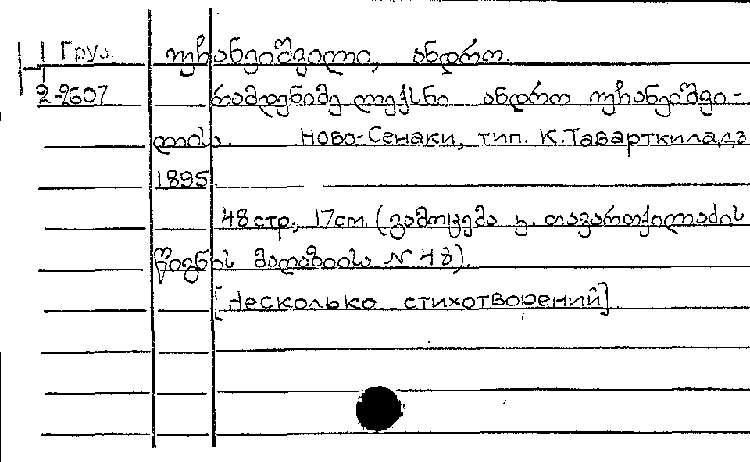 Груз. უჩანეიშვილი, ანდრო.
2-2607 რამდენიმე ლექსნი ანდრო უჩანეიშვი-
ლისა. Ново-Сенаки, тип. К.Таварткиладзе
1895
48 стр., 17cm. (გამოცემა კ. თავართქილაძის
წიგნის მაღაზიისა № 48).
[Несколько стихотворений].